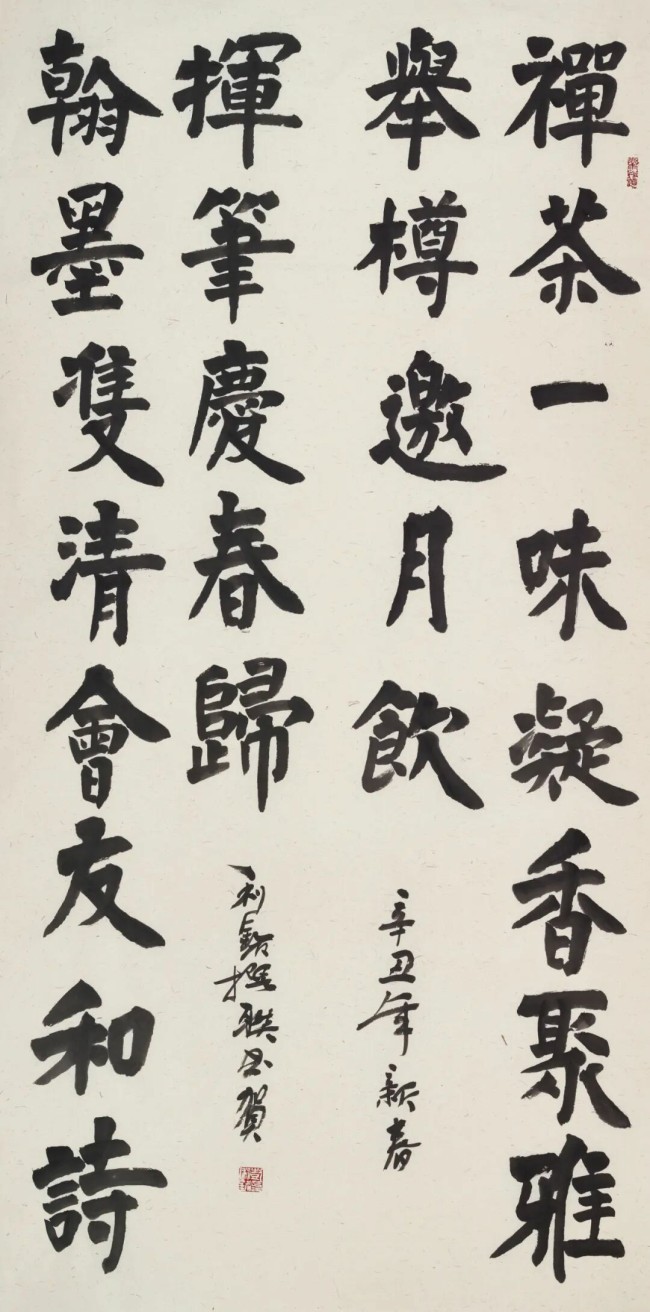 禪茶一味凝香聚雅
舉樽邀月飲
辛丑年新春
翰墨雙清會友和詩
揮筆慶春歸
利撰聯书賀